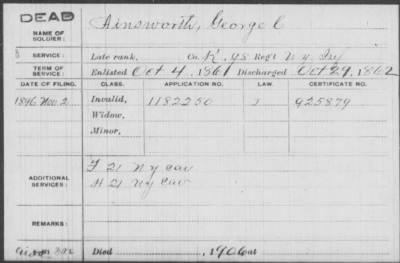 DEAD
NAME OF SOLDIER: Ainsworth, George C
SERVICE: Late rank, Co. K, 98 Reg't N.Y. Inf
TERM OF SERVICE: Enlisted Oct 4, 1861 Discharged Oct 29, 1862
DATE OF FILING. CLASS. APPLICATION NO. LAW. CERTIFICATE NO.
1896 Nov. 2 Invalid, 1182250 925879
Widow,
Minor,
ADDITIONAL SERVICES: F 21 N Y Cav
H 21 N Y Cav
REMARKS:
Died 1906 at